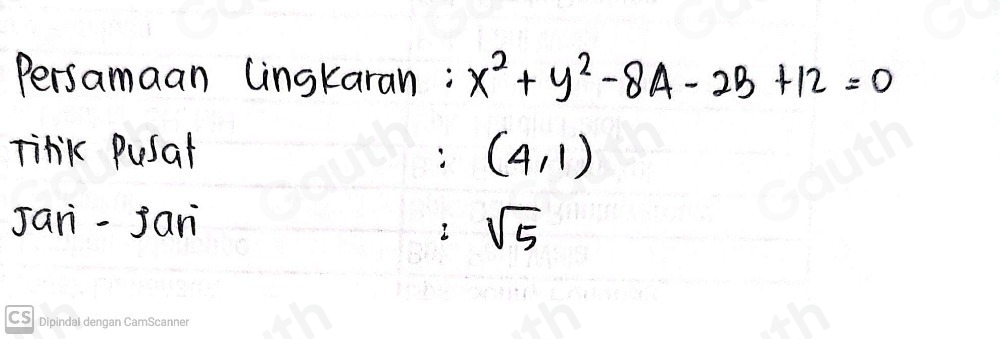 Persamaan Lingkaran : x² + y² - 8A - 2B + 12 = 0
Titik Pusat : (4,1)
Jari - Jari : √5
CS Dipindai dengan CamScanner
Gauth